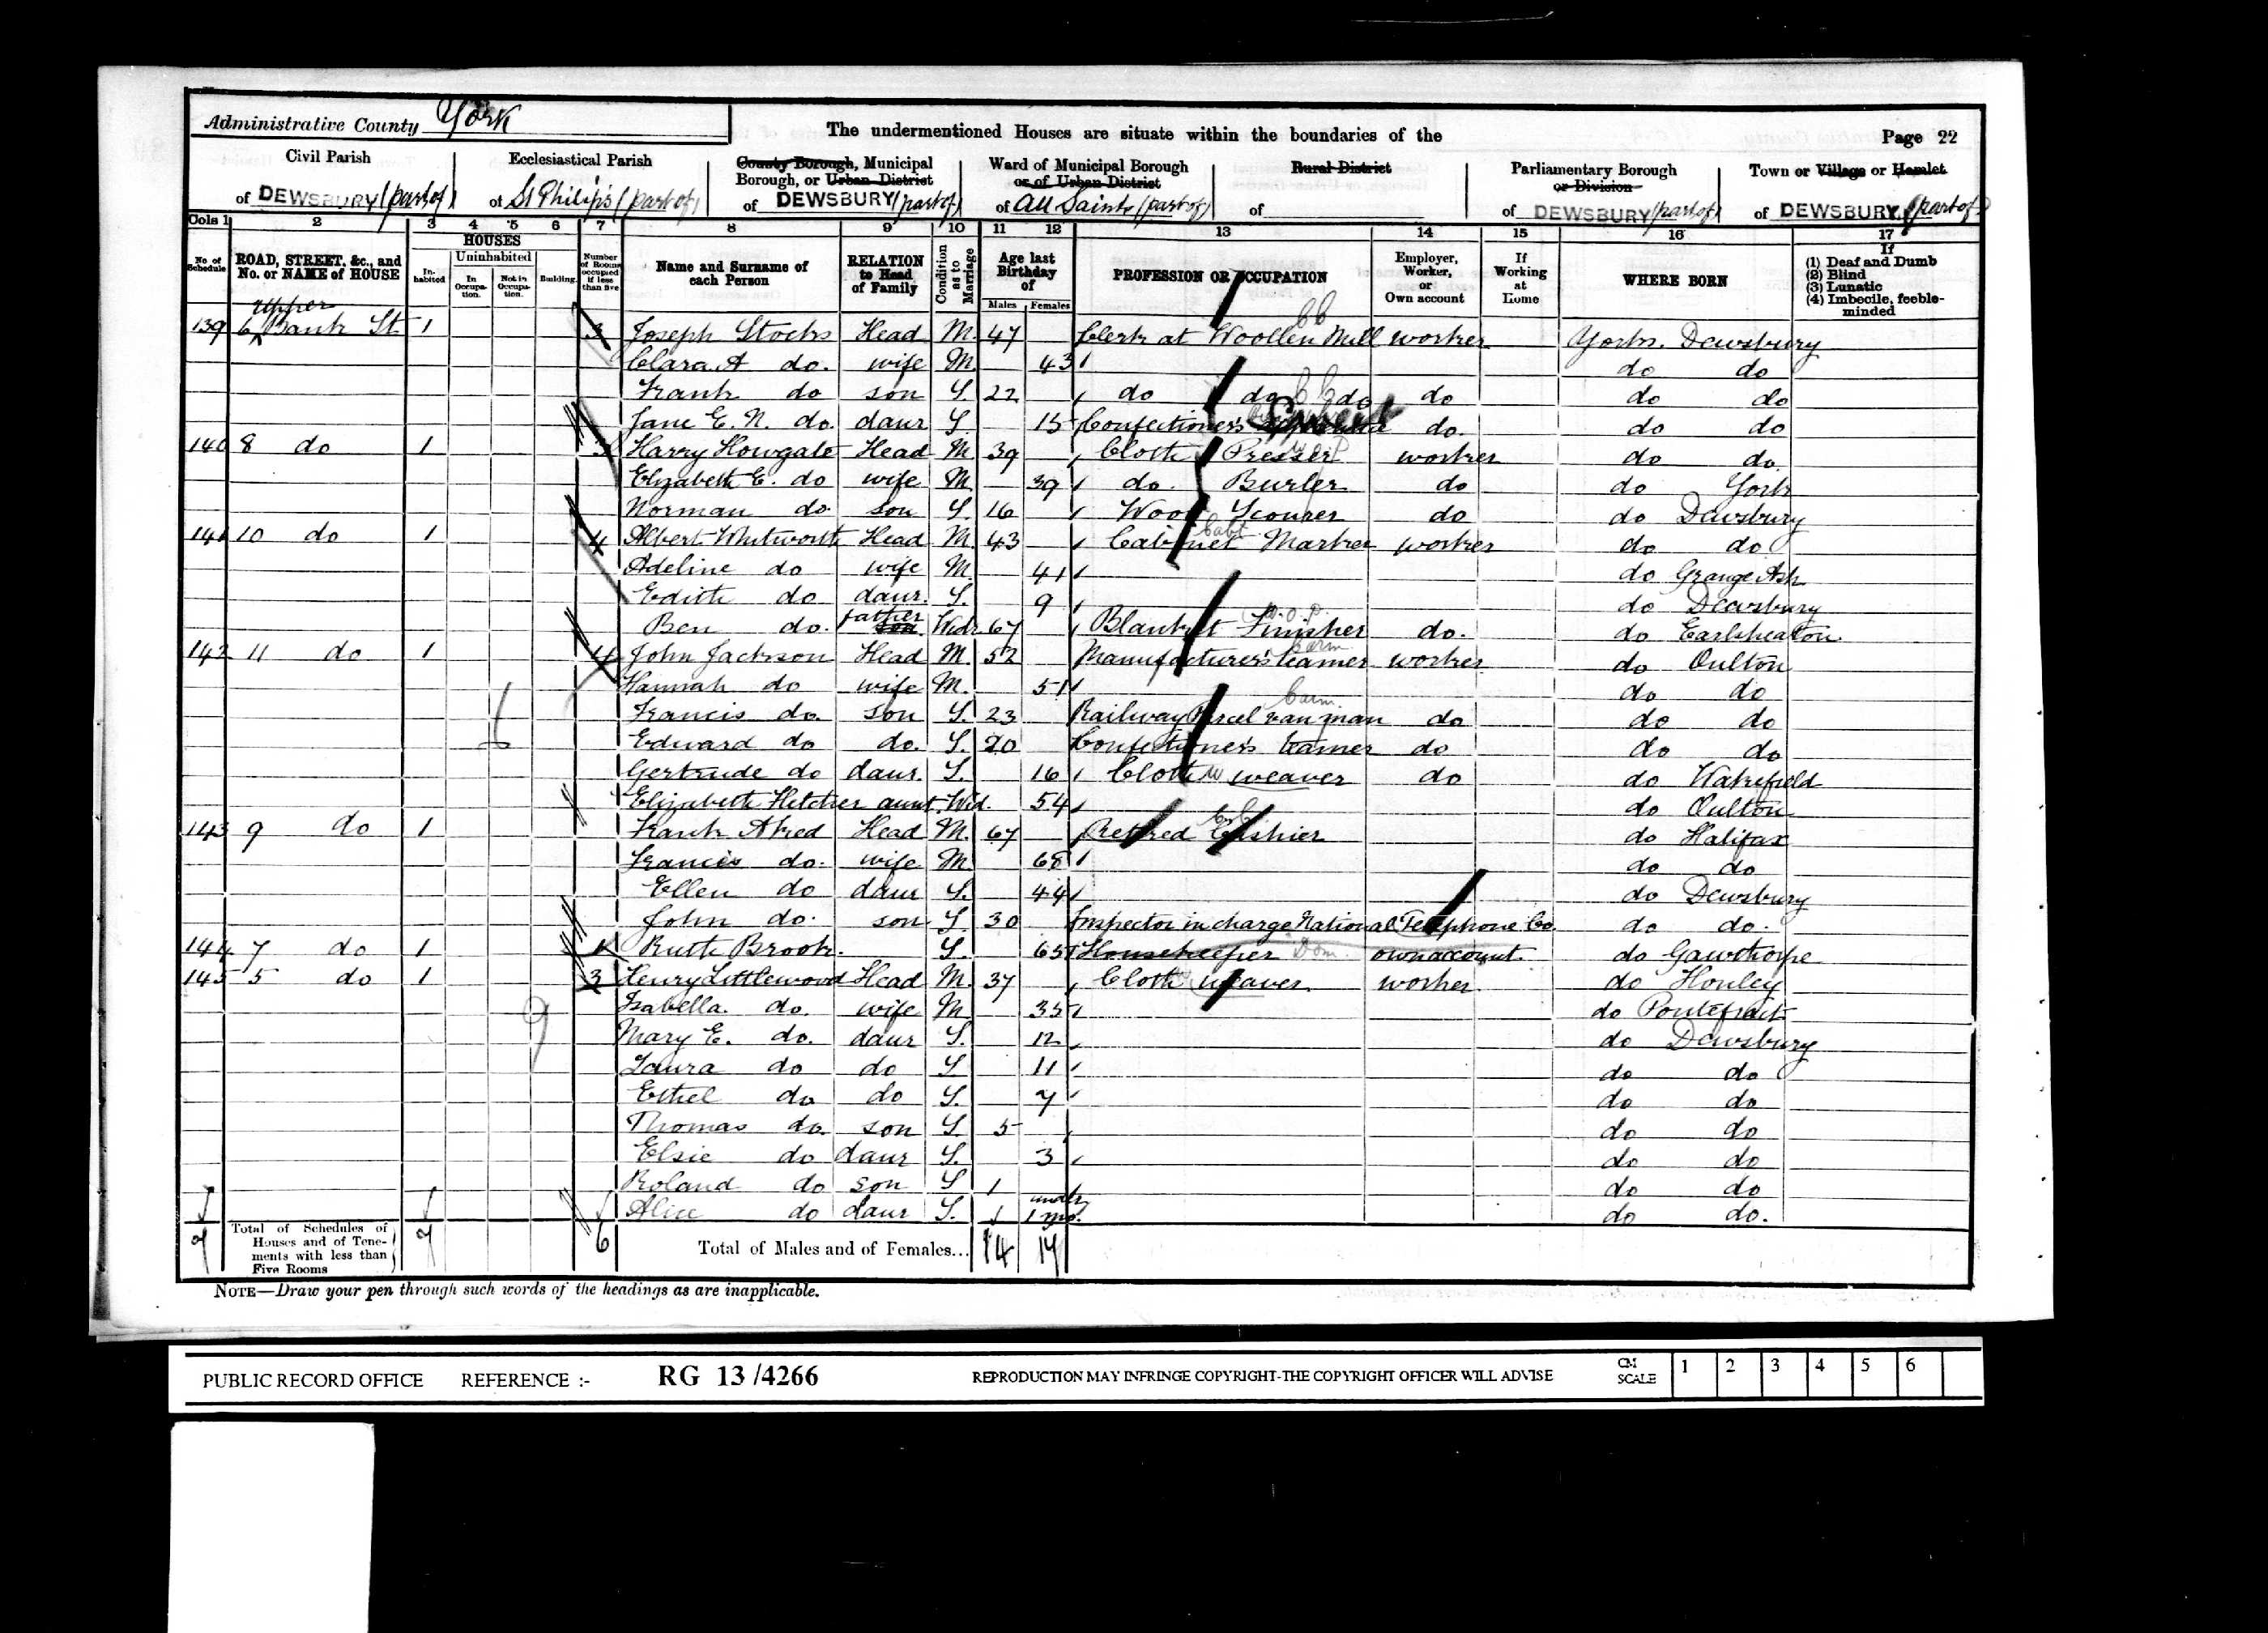 Administrative County York
The undermentioned Houses are situate within the boundaries of the
Page 22
Civil Parish
of DEWSBURY (part of)
Ecclesiastical Parish
of St Philip's (part of)
County Borough, Municipal
Borough, or Urban District
of DEWSBURY (part of)
Ward of Municipal Borough
or of Urban District
of All Saints (part of)
Rural District
of
Parliamentary Borough
or Division
of DEWSBURY (part of)
Town or Village or Hamlet
of DEWSBURY (part of)
Cols 1 2 3 4 5 6 7 8 9 10 11 12 13 14 15 16 17
No. of Schedule
ROAD, STREET, &c., and No. or NAME of HOUSE
HOUSES
In-habited
Uninhabited
In Occupa-tion.
Not in Occupa-tion.
Building.
Number of Rooms occupied if less than five
Name and Surname of each Person
RELATION to Head of Family
Condition as to Marriage
Age last Birthday of
Males Females
PROFESSION OR OCCUPATION
Employer, Worker, or Own account
If Working at Home
WHERE BORN
If
(1) Deaf and Dumb
(2) Blind
(3) Lunatic
(4) Imbecile, feeble-minded
139 6 Upper Bank St 1 3 Joseph Stocks Head M. 47 Clerk at Woollen Mill worker Yorks. Dewsbury
Clara A do. wife M. 43 do do
Frank do son S. 22 do do do do do do
Jane E. N. do. daur S. 15 Confectioner's do. do do
140 8 do 1 3 Harry Howgate Head M 39 Cloth Presser worker do do.
Elizabeth E. do wife M. 39 do. Burler do do York
Norman do son S. 16 Wool Scourer do do Dewsbury
141 10 do 1 4 Albert Whitworth Head M. 43 Cabinet Marker worker do do
Adeline do wife M. 41 do Grange Ash
Edith do daur. S. 9 do Dewsbury
Ben do. father son Widr 67 Blanket Finisher do. do Earlsheaton
142 11 do 1 4 John Jackson Head M. 52 Manufacturer's teamer worker do Oulton
Hannah do wife M. 51 do do
Francis do. son S. 23 Railway Parcel van man do do do
Edward do do. S. 20 Confectioner's teamer do do do
Gertrude do daur. S. 16 Cloth weaver do do Wakefield
Elizabeth Fletcher aunt. Wid. 54 do Oulton
143 9 do 1 Frank Aked Head M. 67 Retired Cashier do Halifax
Francis do. wife M. 68 do do
Ellen do daur S. 44 do Dewsbury
John do. son S. 30 Inspector in charge National Telephone Co. do do.
144 7 do 1 1 Ruth Brook. S. 65 Housekeeper Dom. own account. do Gawthorpe
145 5 do 1 3 Henry Littlewood Head M. 37 Cloth weaver. worker do Honley
Isabella. do. wife M. 35 do Pontefract
Mary E. do. daur S. 12 do Dewsbury
Laura do do S 11 do do
Ethel do do S. 7 do do
Thomas do. son S. 5 do do
Elsie do daur S. 3 do do
Roland do son S 1 do do
Alice do daur S. under 1 mo. do do.
7 Total of Schedules of Houses and of Tene-ments with less than Five Rooms 7 6 Total of Males and of Females... 14 17
NOTE—Draw your pen through such words of the headings as are inapplicable.
PUBLIC RECORD OFFICE REFERENCE :- RG 13/4266 REPRODUCTION MAY INFRINGE COPYRIGHT-THE COPYRIGHT OFFICER WILL ADVISE CM SCALE 1 2 3 4 5 6